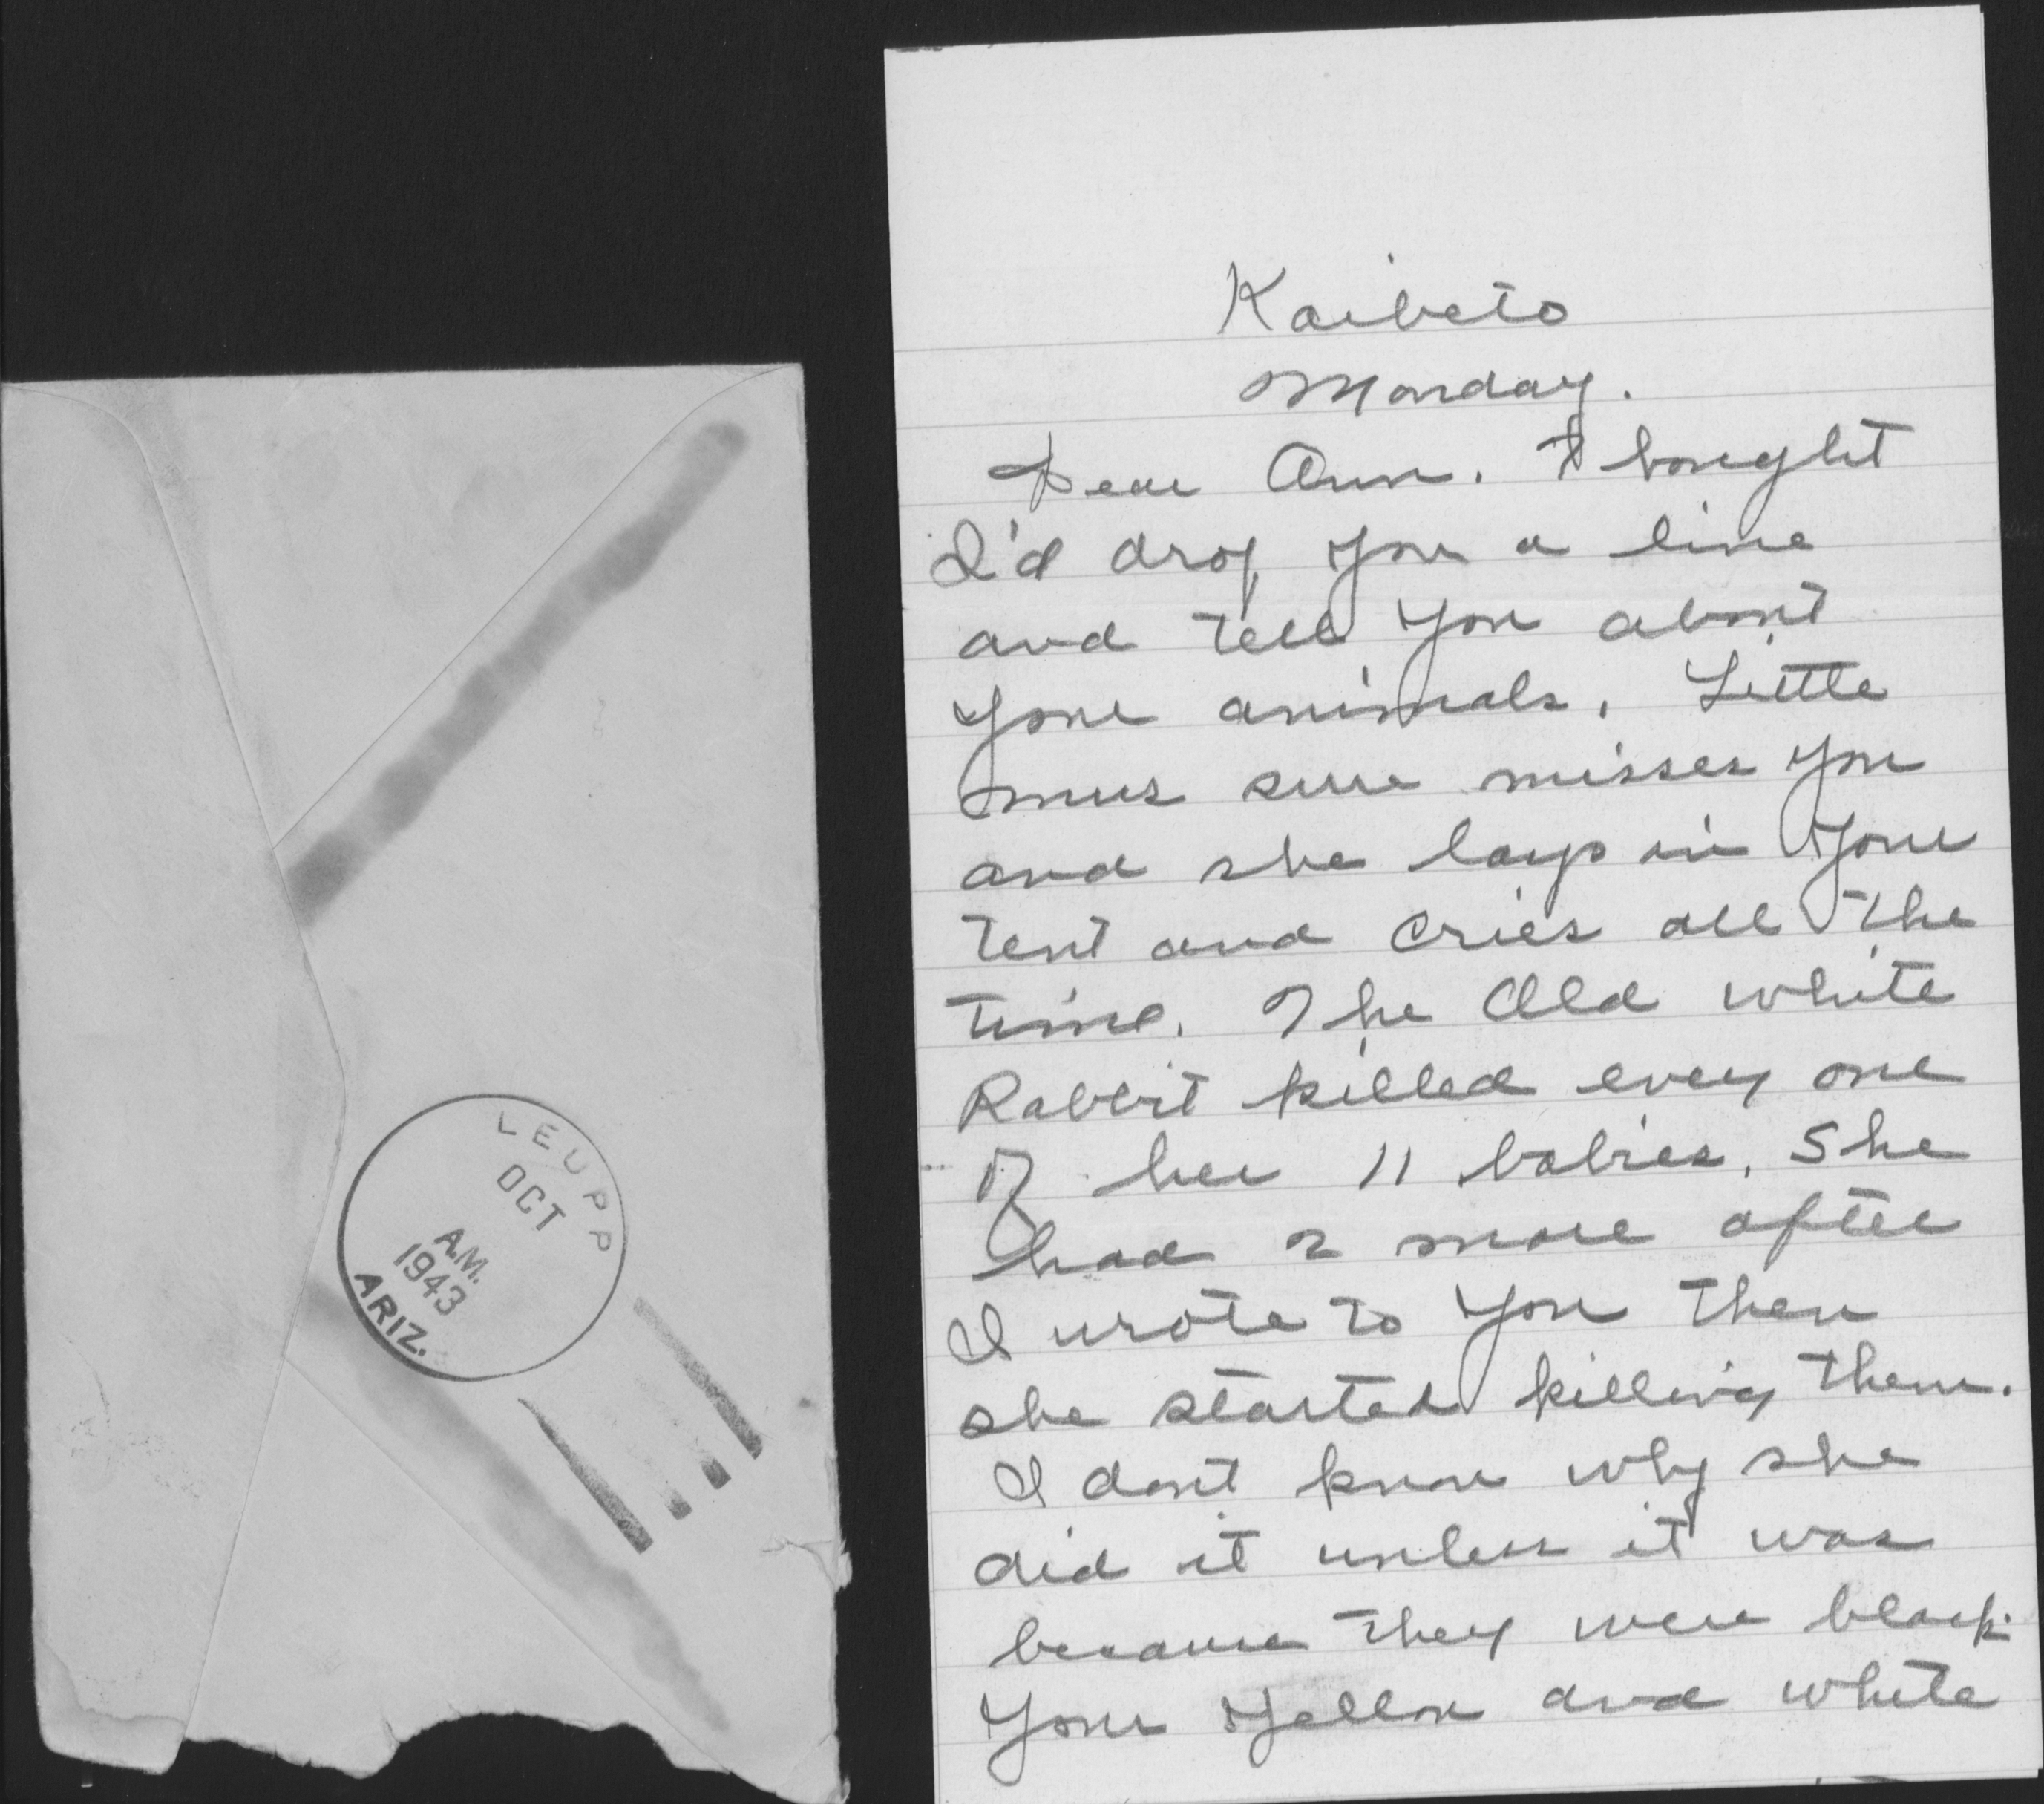 LEUPP
OCT
A.M.
1943
ARIZ.
Kaibeto
Monday.
Dear Ann. I bought
I'd drop you a line
and tell you about
your animals. Little
mus sure misses you
and she lays in your
tent and cries all the
time. The Old white
Rabbit killed every one
of her 11 babies. She
had 2 more after
I wrote to you then
she started killing them.
I dont know why she
did it unless it was
because they were black.
Your Yellow and white